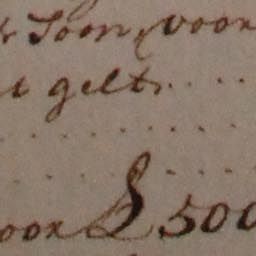 Soon, voor
gelt . . . .
. . . . . . .
. . . . .
voor £ 500